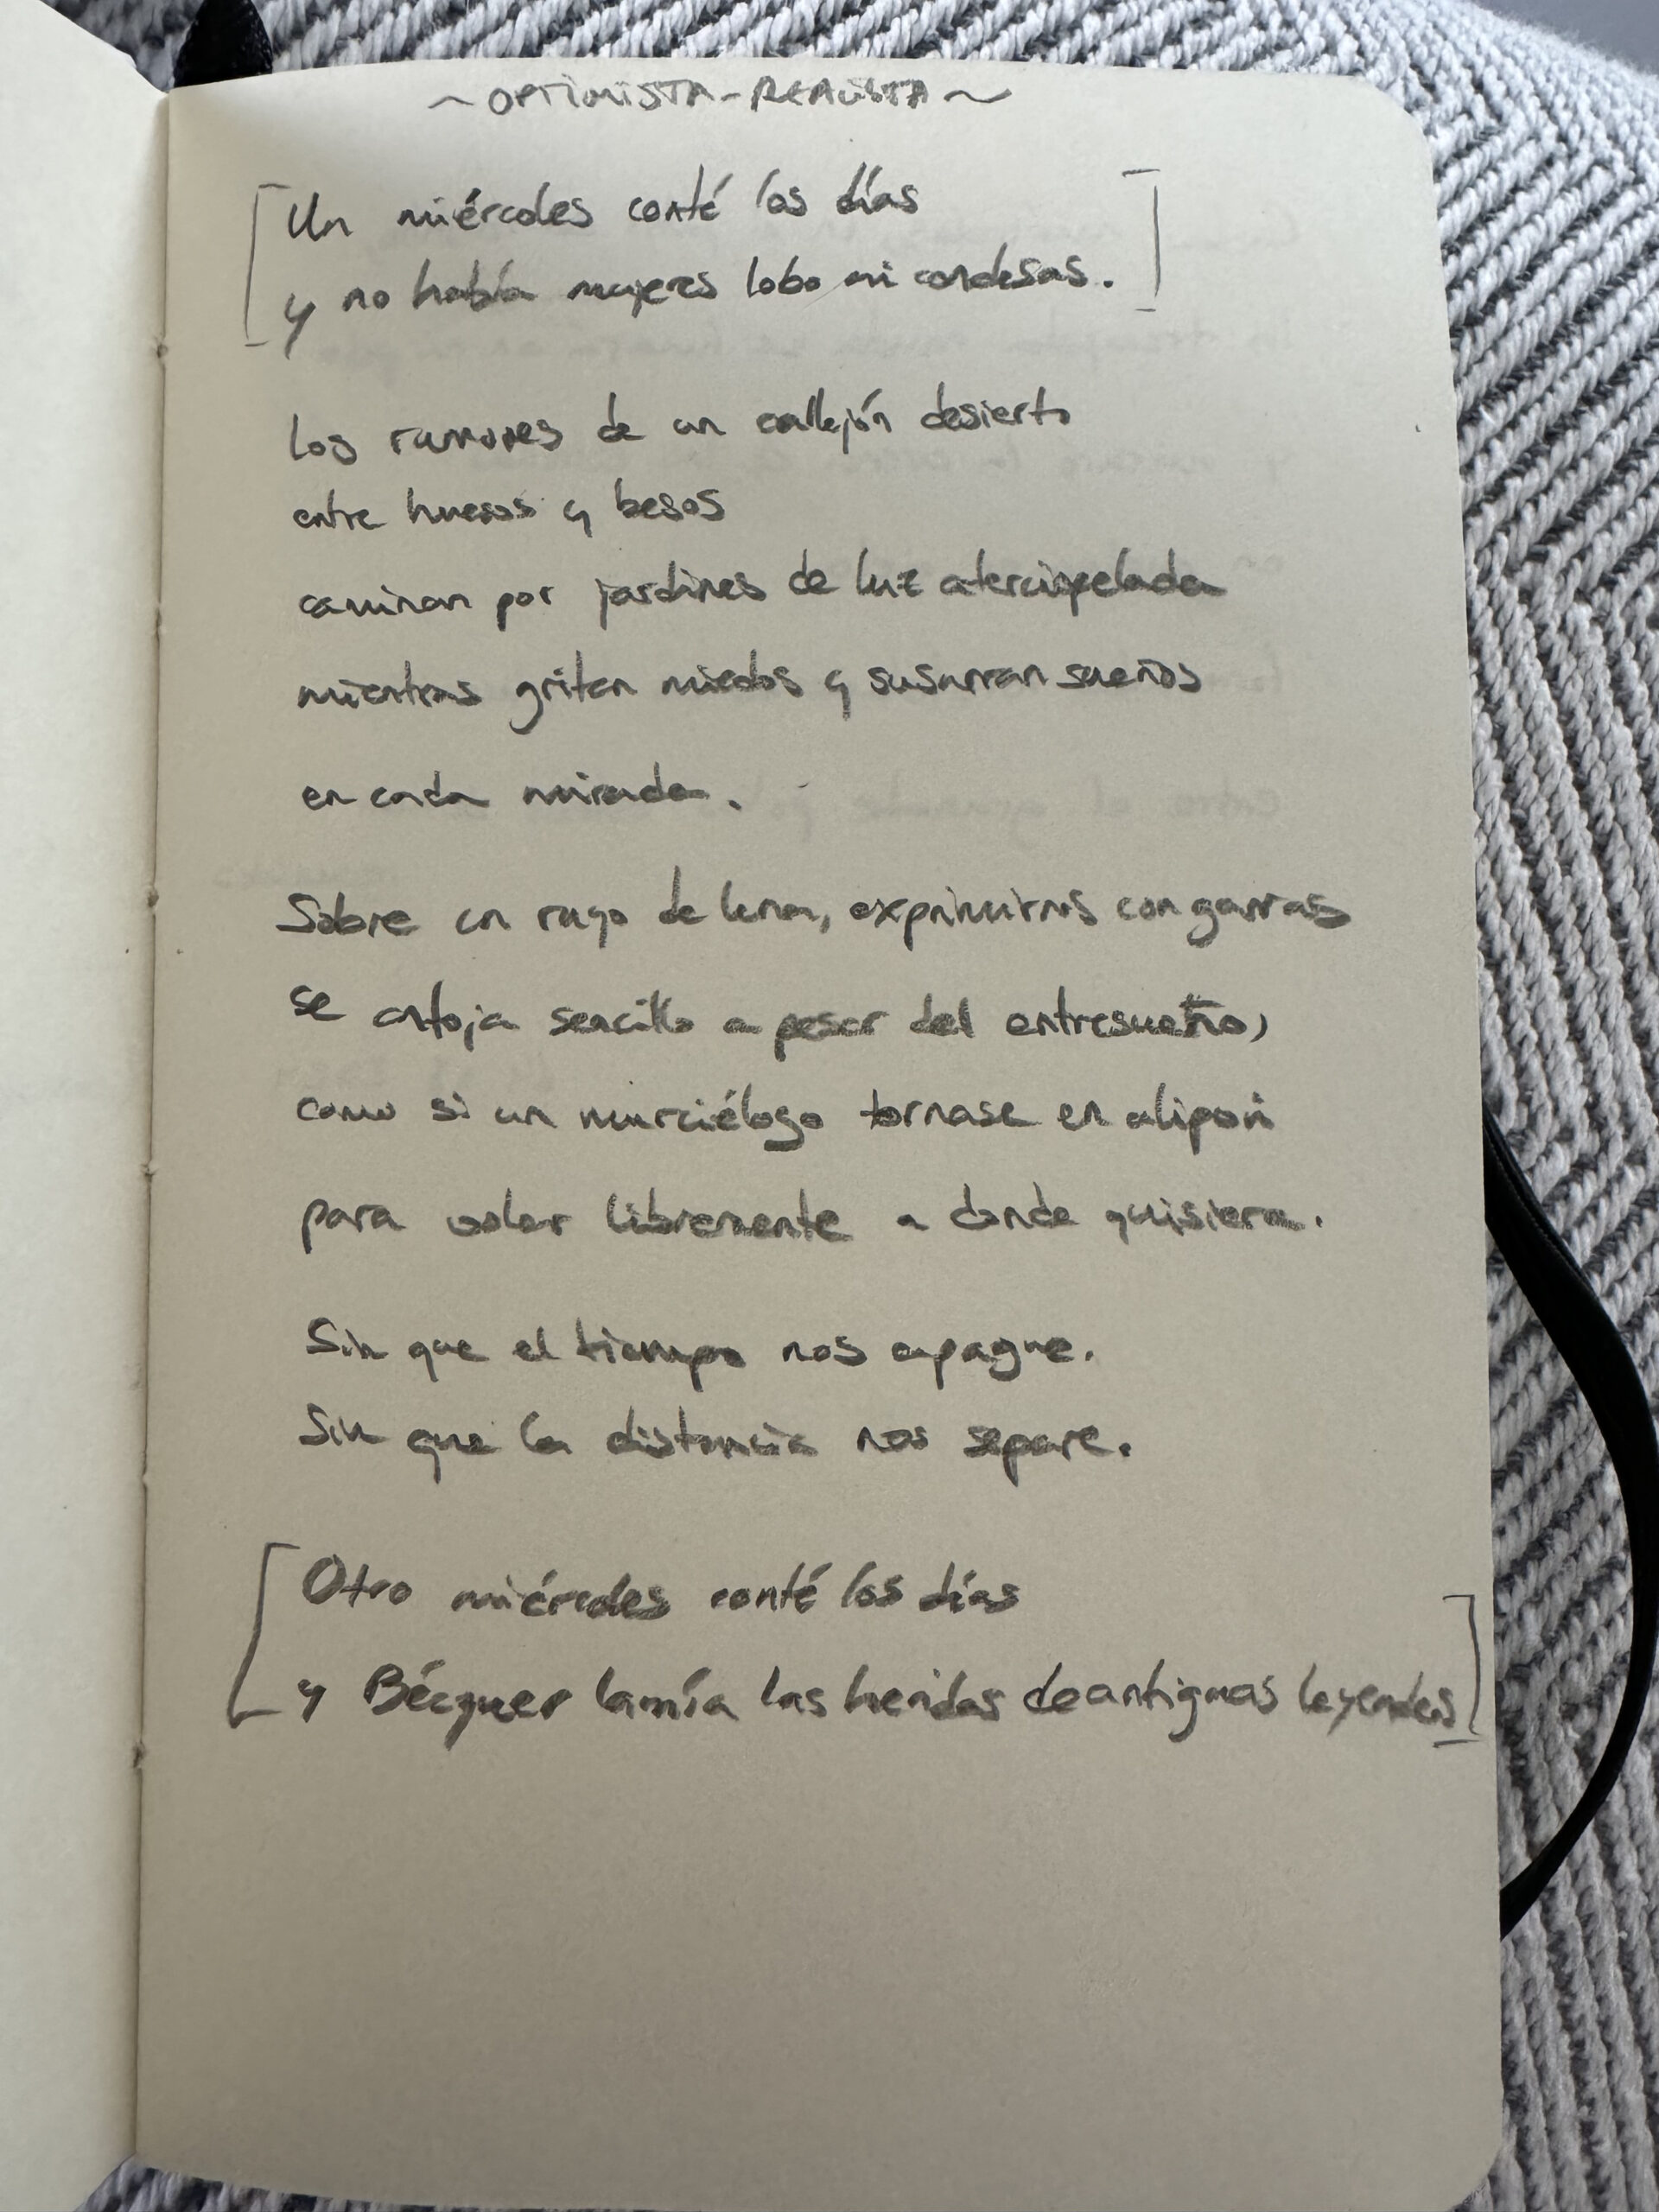 ~ OPTIMISTA-REALISTA ~
[Un miércoles conté los días
y no había mujeres lobo ni condesas.]
Los rumores de un callejón desierto
entre huesos y besos
caminan por jardines de luz aterciopelada
mientras gritan miedos y susurran sueños
en cada mirada.
Sobre un rayo de luna, exprimirnos con garras
se antoja sencillo a pesar del entresueño,
como si un murciélago tornase en
para volar libremente a donde quisiera.
Sin que el tiempo nos apague.
Sin que la distancia nos separe.
[Otro miércoles conté los días
y Bécquer lamía las heridas de antiguas leyendas]